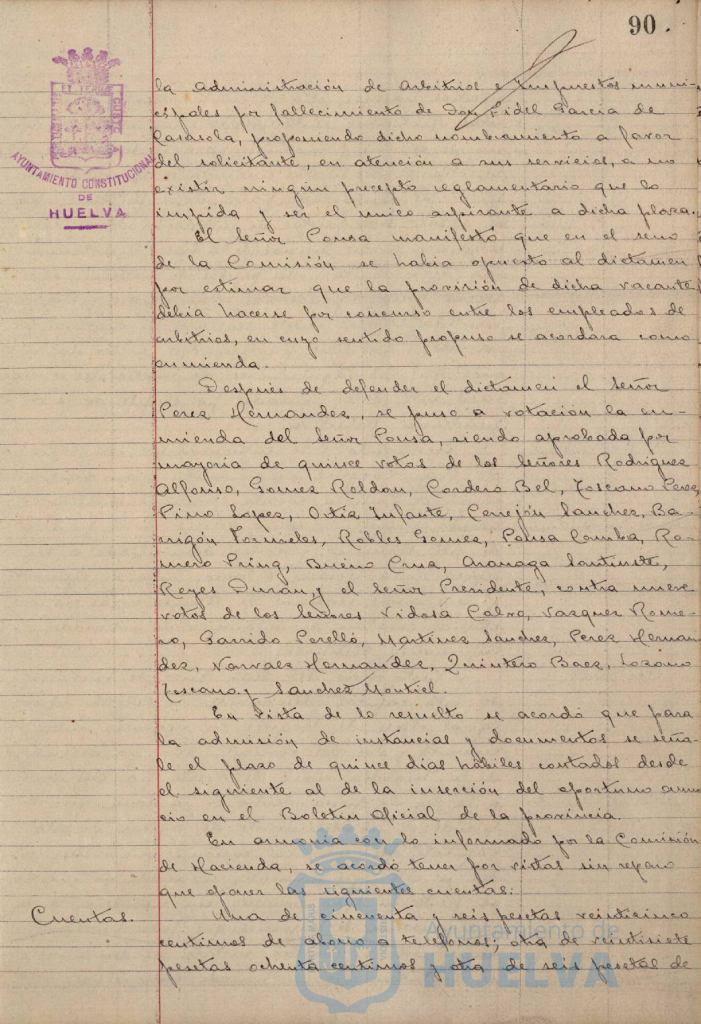 90.
AYUNTAMIENTO CONSTITUCIONAL
DE
HUELVA
la administración de arbitrios e impuestos muni-
cipales por fallecimiento de Don Fidel Garcia de
Casasola, proponiendo dicho nombramiento a favor
del solicitante, en atención a sus servicios, a no
existir ningún precepto reglamentario que lo
impida y ser el unico aspirante a dicha plaza.
El Señor Ponsa manifestó que en el seno
de la Comisión se habia opuesto al dictamen
por estimar que la provisión de dicha vacante
debia hacerse por concurso entre los empleados de
arbitrios, en cuyo sentido propuso se acordara como
enmienda.
Después de defender el dictamen el Señor
Perez Hernandez, se puso a votación la en-
mienda del Señor Ponsa, siendo aprobada por
mayoria de quince votos de los Señores Rodriguez
Alfonso, Gomez Roldan, Cordero Bel, Toscano Perez,
Pino Lopez, Ortiz Infante, Cerrejón Sanchez, Ba-
rrigón Fornieles, Robles Gomez, Ponsa Ro-
mero Pring, Bueno Cruz,
Reyes Durán y el Señor Presidente, contra nueve
votos de los Señores Vidosa Calvo, Vazquez Rome-
ro, Garrido Perelló, Martinez Sanchez, Perez Hernan-
dez, Narvaez Hernandez, Quintero Baez, Lozano
Toscano y Sanchez Montiel.
En vista de lo resuelto se acordó que para
la admisión de instancias y documentos se seña-
le el plazo de quince dias hábiles contados desde
el siguiente al de la inserción del oportuno anun-
cio en el Boletin Oficial de la provincia.
En armonia con lo informado por la Comisión
de Hacienda, se acordó tener por vistas sin reparo
que oponer las siguientes cuentas:
Cuentas.
Una de cincuenta y seis pesetas veinticinco
centimos de abono a telefonos; otra de veintisiete
pesetas ochenta centimos y otra de seis pesetas de
Ayuntamiento de
HUELVA